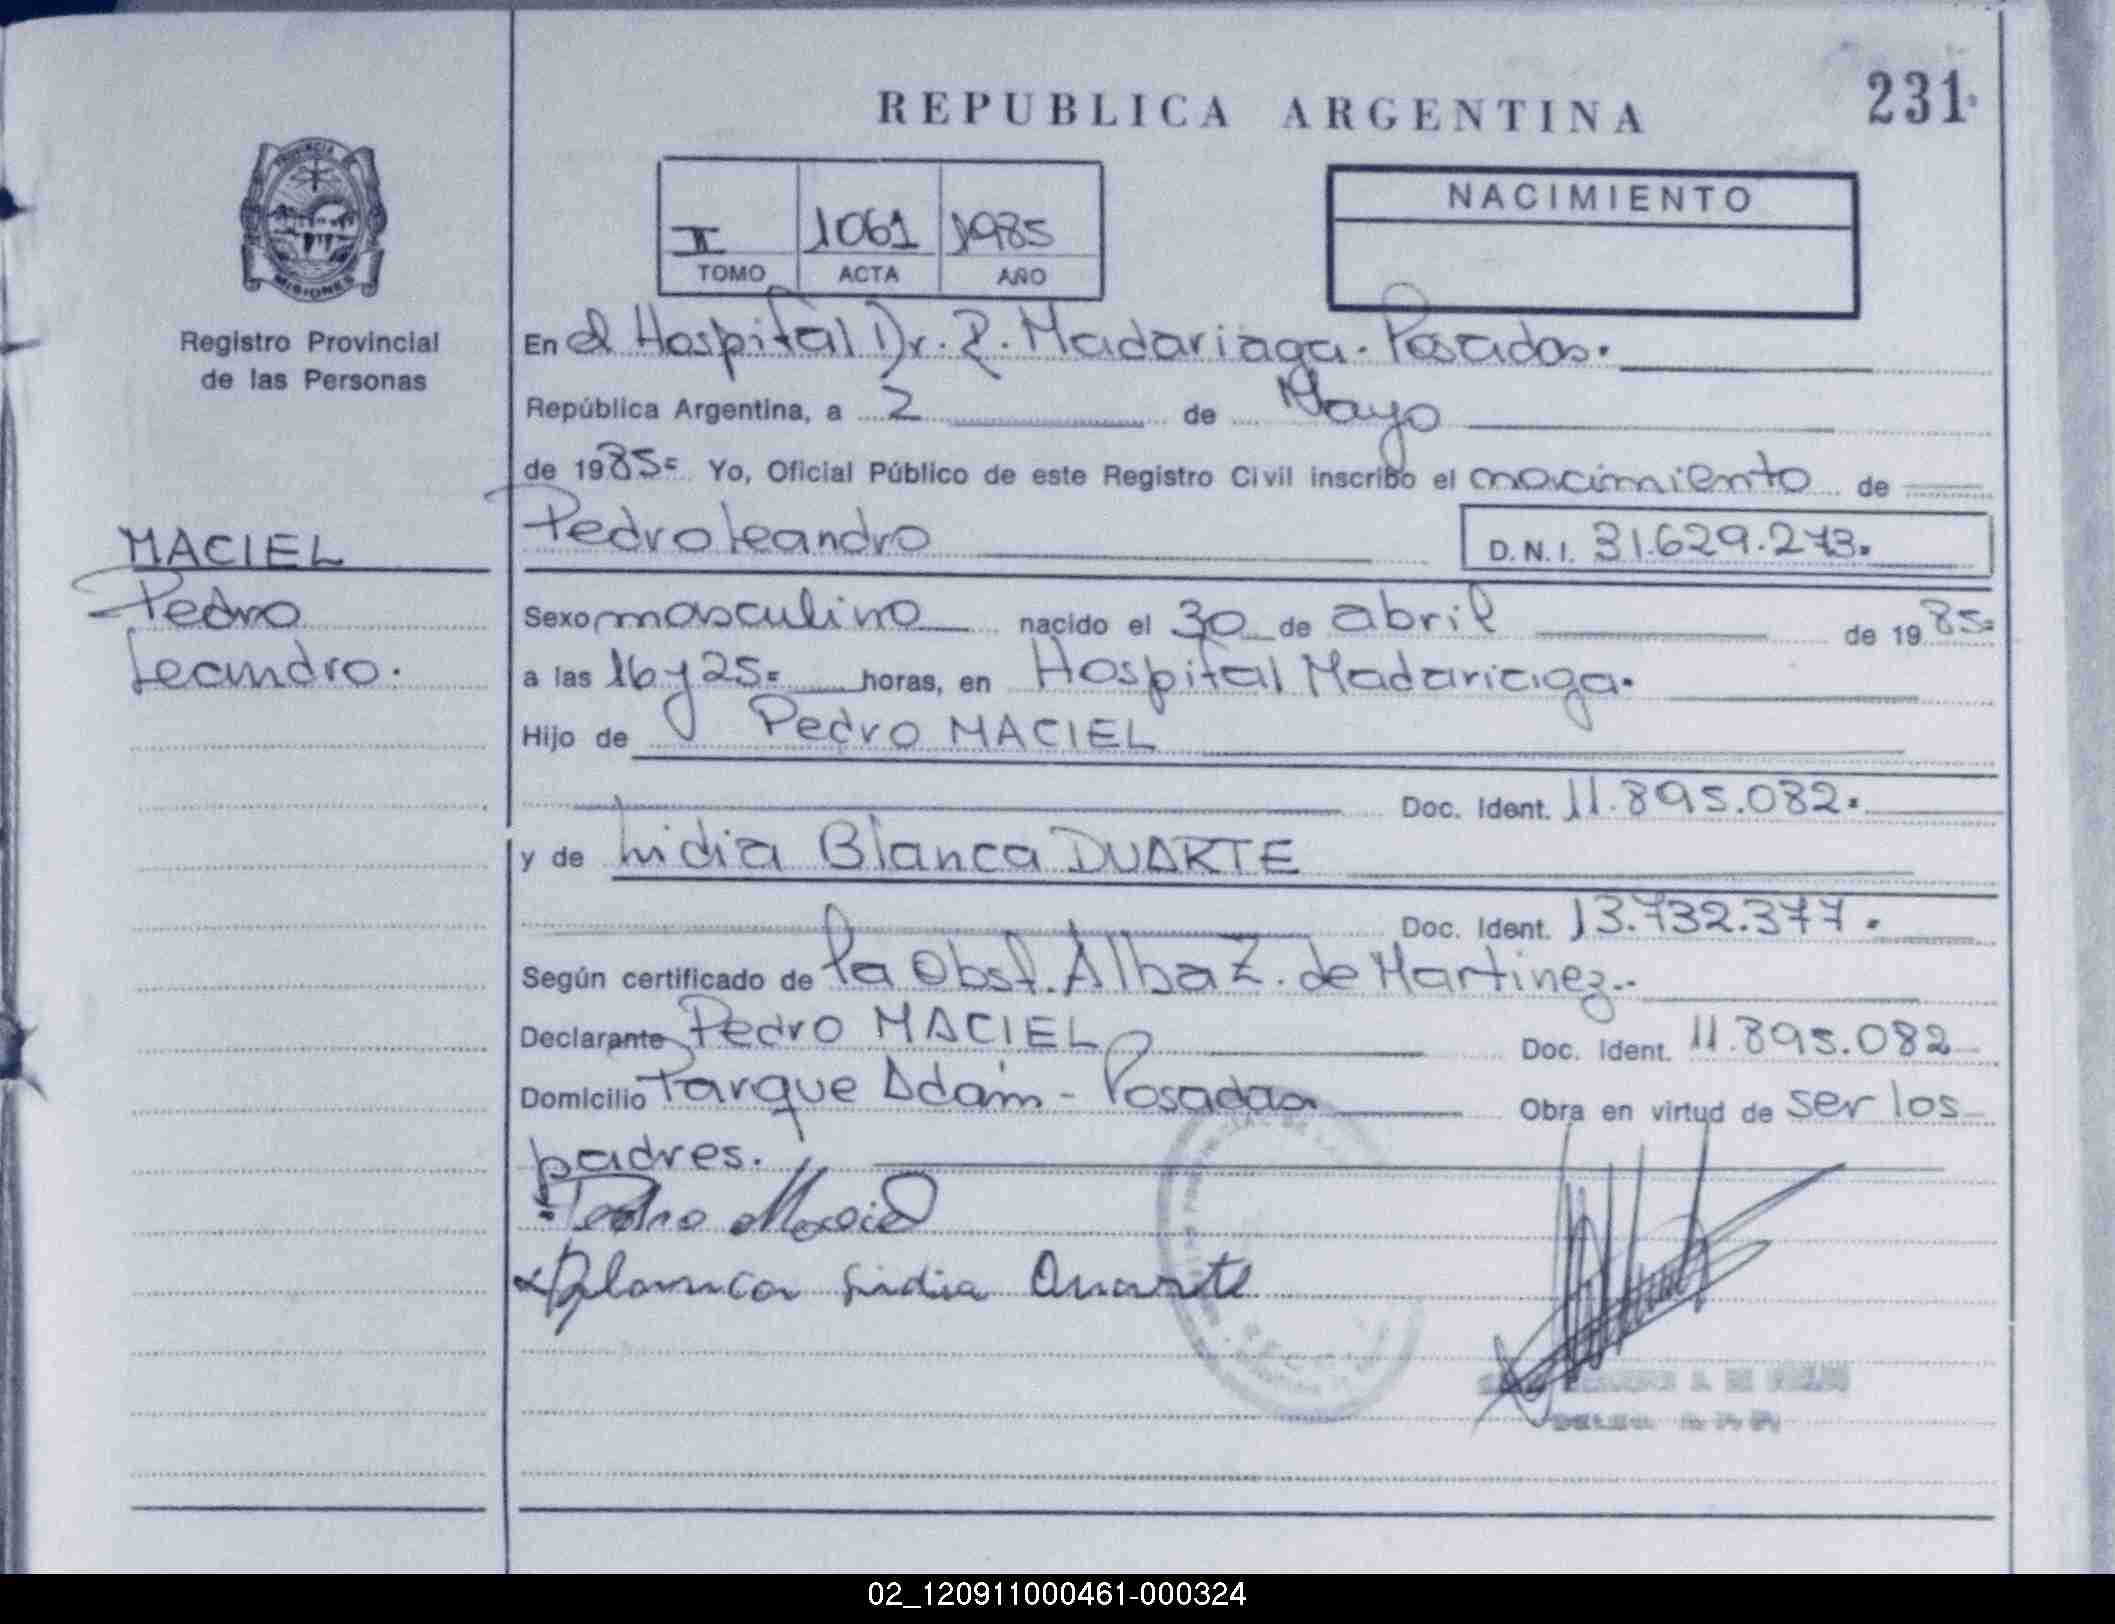 REPUBLICA ARGENTINA
231
PROVINCIA
MISIONES
Registro Provincial
de las Personas
II 1061 1985
TOMO ACTA AÑO
NACIMIENTO
En el Hospital Dr. R. Madariaga. Posadas.
República Argentina, a 2 de Mayo
de 1985= Yo, Oficial Público de este Registro Civil inscribo el nacimiento de
MACIEL
Pedro
Leandro.
Pedro Leandro D.N.I. 31.629.273.
Sexo masculino nacido el 30 de abril de 1985=
a las 16 y 25= horas, en Hospital Madariaga.
Hijo de Pedro MACIEL
Doc. Ident. 11.895.082.
y de Lidia Blanca DUARTE
Doc. Ident. 13.732.377.
Según certificado de la Obst. Alba Z. de Martinez..
Declarante Pedro MACIEL Doc. Ident. 11.895.082
Domicilio Parque Adam - Posadas Obra en virtud de ser los
padres.
Pedro Maciel
Blanca Lidia Duarte
02_120911000461-000324